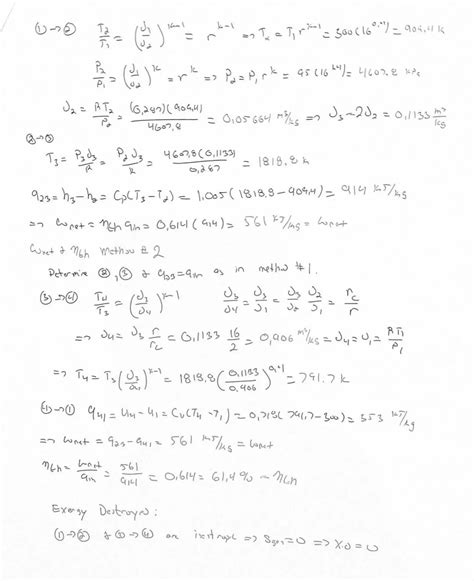 ①→② T₂/T₁ = (υ₁/υ₂)^(k-1) = r^(k-1) => T₂ = T₁ r^(k-1) = 300(16^0,4) = 909,4 k
P₂/P₁ = (υ₁/υ₂)^k = r^k => P₂ = P₁ r^k = 95(16^1,4) = 4607.8 kPa
υ₂ = RT₂/P₂ = (0,287)(909,4)/4607,8 = 0,05664 m³/kg => υ₃ = 2υ₂ = 0,1133 m³/kg
②→③
T₃ = P₃υ₃/R = P₂υ₃/R = 4607,8(0,1133)/0,287 = 1818,8 k
q₂₃ = h₃ - h₂ = Cp(T₃ - T₂) = 1,005(1818,8 - 909,4) = 914 kJ/kg
=> ωnet = ηth qin = 0,614(914) = 561 kJ/kg = ωnet
ωnet & ηth Method # 2
Determine ②, ③ & q₂₃ = qin as in method #1.
③→④ T₄/T₃ = (υ₃/υ₄)^(k-1) υ₃/υ₄ = υ₃/υ₁ = υ₃/υ₂ υ₂/υ₁ = rc/r
=> υ₄ = υ₃ r/rc = 0,1133 16/2 = 0,906 m³/kg = υ₄ = υ₁ = RT₁/P₁
=> T₄ = T₃(υ₃/υ₄)^(k-1) = 1818,8(0,1133/0,906)^0,4 = 791.7 k
④→① q₄₁ = u₄ - u₁ = Cv(T₄ - T₁) = 0,718(791,7-300) = 353 kJ/kg
=> ωnet = q₂₃ - q₄₁ = 561 kJ/kg = ωnet
ηth = ωnet/qin = 561/914 = 0,614 = 61,4% = ηth
Exergy Destroyed:
①→② & ③→④ are isentropic => Sgen = 0 => XD = 0